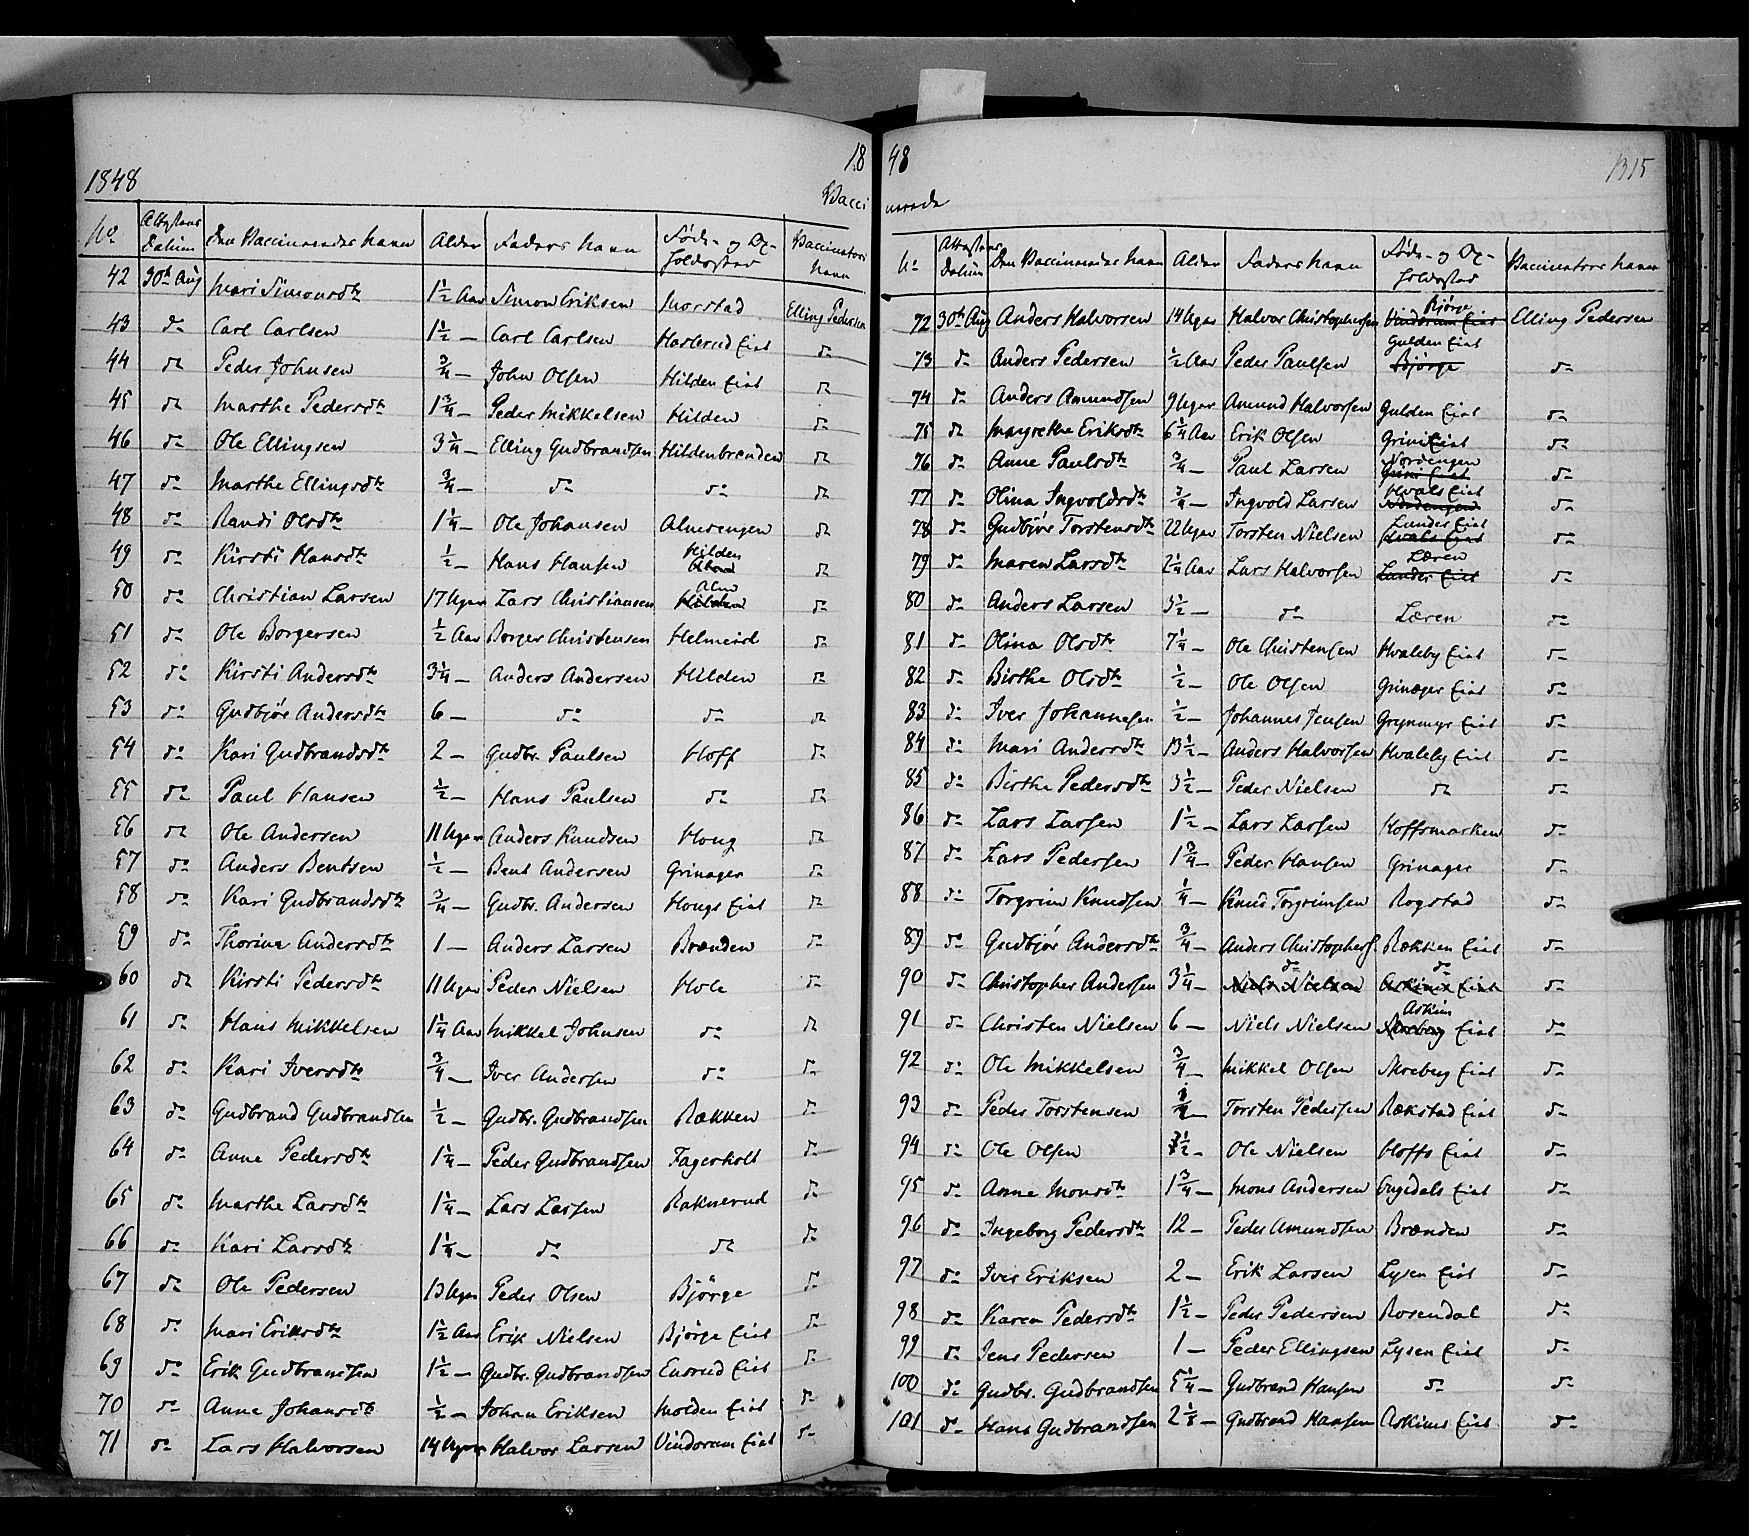 1848
18
Vacci
No Attestens Datum Den Vaccineredes Navn Alder Faders Navn Føde- og Op-holdssted Vaccinators Navn
42 30te Aug Mari Simonsdtr 1 1/2 Aar Simon Eriksen Morstad Elling Pedersen
43 do Carl Carlsen 1 1/2 — Carl Carlsen Haslerud Eiet do
44 do Peder Johnsen 3/4 — John Olsen Hilden Eiet do
45 do Marthe Pedersdtr 1 3/4 — Peder Mikkelsen Hilden do
46 do Ole Ellingsen 3 1/4 — Elling Gudbrandsen Hildenbrænden do
47 do Marthe Ellingsdtr 3/4 — do do do
48 do Randi Olsdtr 1 1/4 — Ole Johansen Almesengen do
49 do Kirsti Hansdtr 1/2 — Hans Hansen Hilden do
50 do Christian Larsen 17 Uger Lars Christiansen Alm do
51 do Ole Borgersen 1/2 Aar Borger Christensen Helmeid do
52 do Kirsti Andersdtr 3 1/4 — Anders Andersen Hilden do
53 do Gudbjør Andersdtr 6 — do do do
54 do Kari Gudbrandsdtr 2 — Gudbr. Paulsen Hoff do
55 do Paul Hansen 1/2 — Hans Paulsen do do
56 do Ole Andersen 11 Uger Anders Knudsen Houg do
57 do Anders Bentsen 1/2 — Bent Andersen Grinager do
58 do Kari Gudbrandsdtr 3/4 — Gudbr. Andersen Hougs Eiet do
59 do Thorine Andersdtr 1 — Anders Larsen Brænden do
60 do Kirsti Pedersdtr 11 Uger Peder Nielsen Hole do
61 do Hans Mikkelsen 1 1/4 Aar Mikkel Johnsen do do
62 do Kari Iversdtr 3/4 — Iver Andersen do do
63 do Gudbrand Gudbrandsen 1/2 — Gudbr. Gudbrandsen Rækken do
64 do Anne Pedersdtr 1 1/4 — Peder Gudbrandsen Fagerholt do
65 do Marthe Larsdtr 1 1/4 — Lars Larsen Raknerud do
66 do Kari Larsdtr 1 1/4 — do do do
67 do Ole Pedersen 13 Uger Peder Olsen Bjørge do
68 do Mari Eriksdtr 1 1/2 Aar Erik Nielsen Bjørge Eiet do
69 do Erik Gudbrandsen 1 1/2 — Gudbr. Gudbrandsen Ensrud Eiet do
70 do Anne Johansdtr 1/2 — Johan Eriksen Molden Eiet do
71 do Lars Halvorsen 14 Uger Halvor Larsen Vindorum Eiet do
48
1315
nerede
No Attestens Datum Den Vaccineredes Navn Alder Faders Navn Føde- og Op-holdssted Vaccinators Navn
72 30te Aug Anders Halvorsen 14 Uger Halvor Christophersen Bjørge Vindorum Eiet Elling Pedersen
73 do Anders Pedersen 1/2 Aar Peder Paulsen Gulden Eiet Bjørge do
74 do Anders Amundsen 9 Uger Amund Halvorsen Gulden Eiet do
75 do Magrethe Eriksdtr 6 1/4 Aar Erik Olsen Grini Eiet do
76 do Anne Paulsdtr 3/4 — Paul Larsen Nordengen Grini Eiet do
77 do Olina Ingvoldsdtr 3/4 — Ingvold Larsen Hvals Eiet Nordengen do
78 do Gudbjør Torstensdtr 22 Uger Torsten Nielsen Lunder Eiet Hvals Eiet do
79 do Maren Larsdtr 2 1/4 Aar Lars Halvorsen Læren Lunder Eiet do
80 do Anders Larsen 3 1/2 — do Læren do
81 do Olina Olsdtr 7 1/4 — Ole Christensen Hvaleby Eiet do
82 do Birthe Olsdtr 1/2 — Ole Olsen Grinager Eiet do
83 do Iver Johannesen 1/2 — Johannes Jensen Grynmyr Eiet do
84 do Mari Andersdtr 13 1/2 — Anders Halvorsen Hvaleby Eiet do
85 do Birthe Pedersdtr 3 1/2 — Peder Nielsen do do
86 do Lars Larsen 1 1/2 — Lars Larsen Hoffsmarken do
87 do Lars Pedersen 1 3/4 — Peder Hansen Grinager do
88 do Torgrim Knudsen 1/4 — Knud Torgrimsen Rogstad do
89 do Gudbjør Andersdtr 3/4 — Anders Christophers. Rækken Eiet do
90 do Christopher Andersen 3 1/4 — do Niels Nielsen do Askims Eiet do
91 do Christen Nielsen 6 — Niels Nielsen Askim Eiet do
92 do Ole Mikkelsen 3/4 — Mikkel Olsen Areberg Eiet do
93 do Peder Torstensen Torsten Pedersen Rækstad Eiet do
94 do Ole Olsen Ole Nielsen Hoffs Eiet do
95 do Anne Monsdtr 1 3/4 — Mons Andersen Engedals Eiet do
96 do Ingeborg Pedersdtr 12 — Peder Amundsen Brænden do
97 do Iver Eriksen 2 — Erik Larsen Lysen Eiet do
98 do Karen Pedersdtr 1 1/2 — Peder Pedersen Rosendal do
99 do Jens Pedersen 1 — Peder Ellingsen Lysen Eiet do
100 do Gudbr. Gudbrandsen 5 1/4 — Gudbrand Hansen do do
101 do Hans Gudbrandsen 2 1/2 — Gudbrand Hansen Askims Eiet do